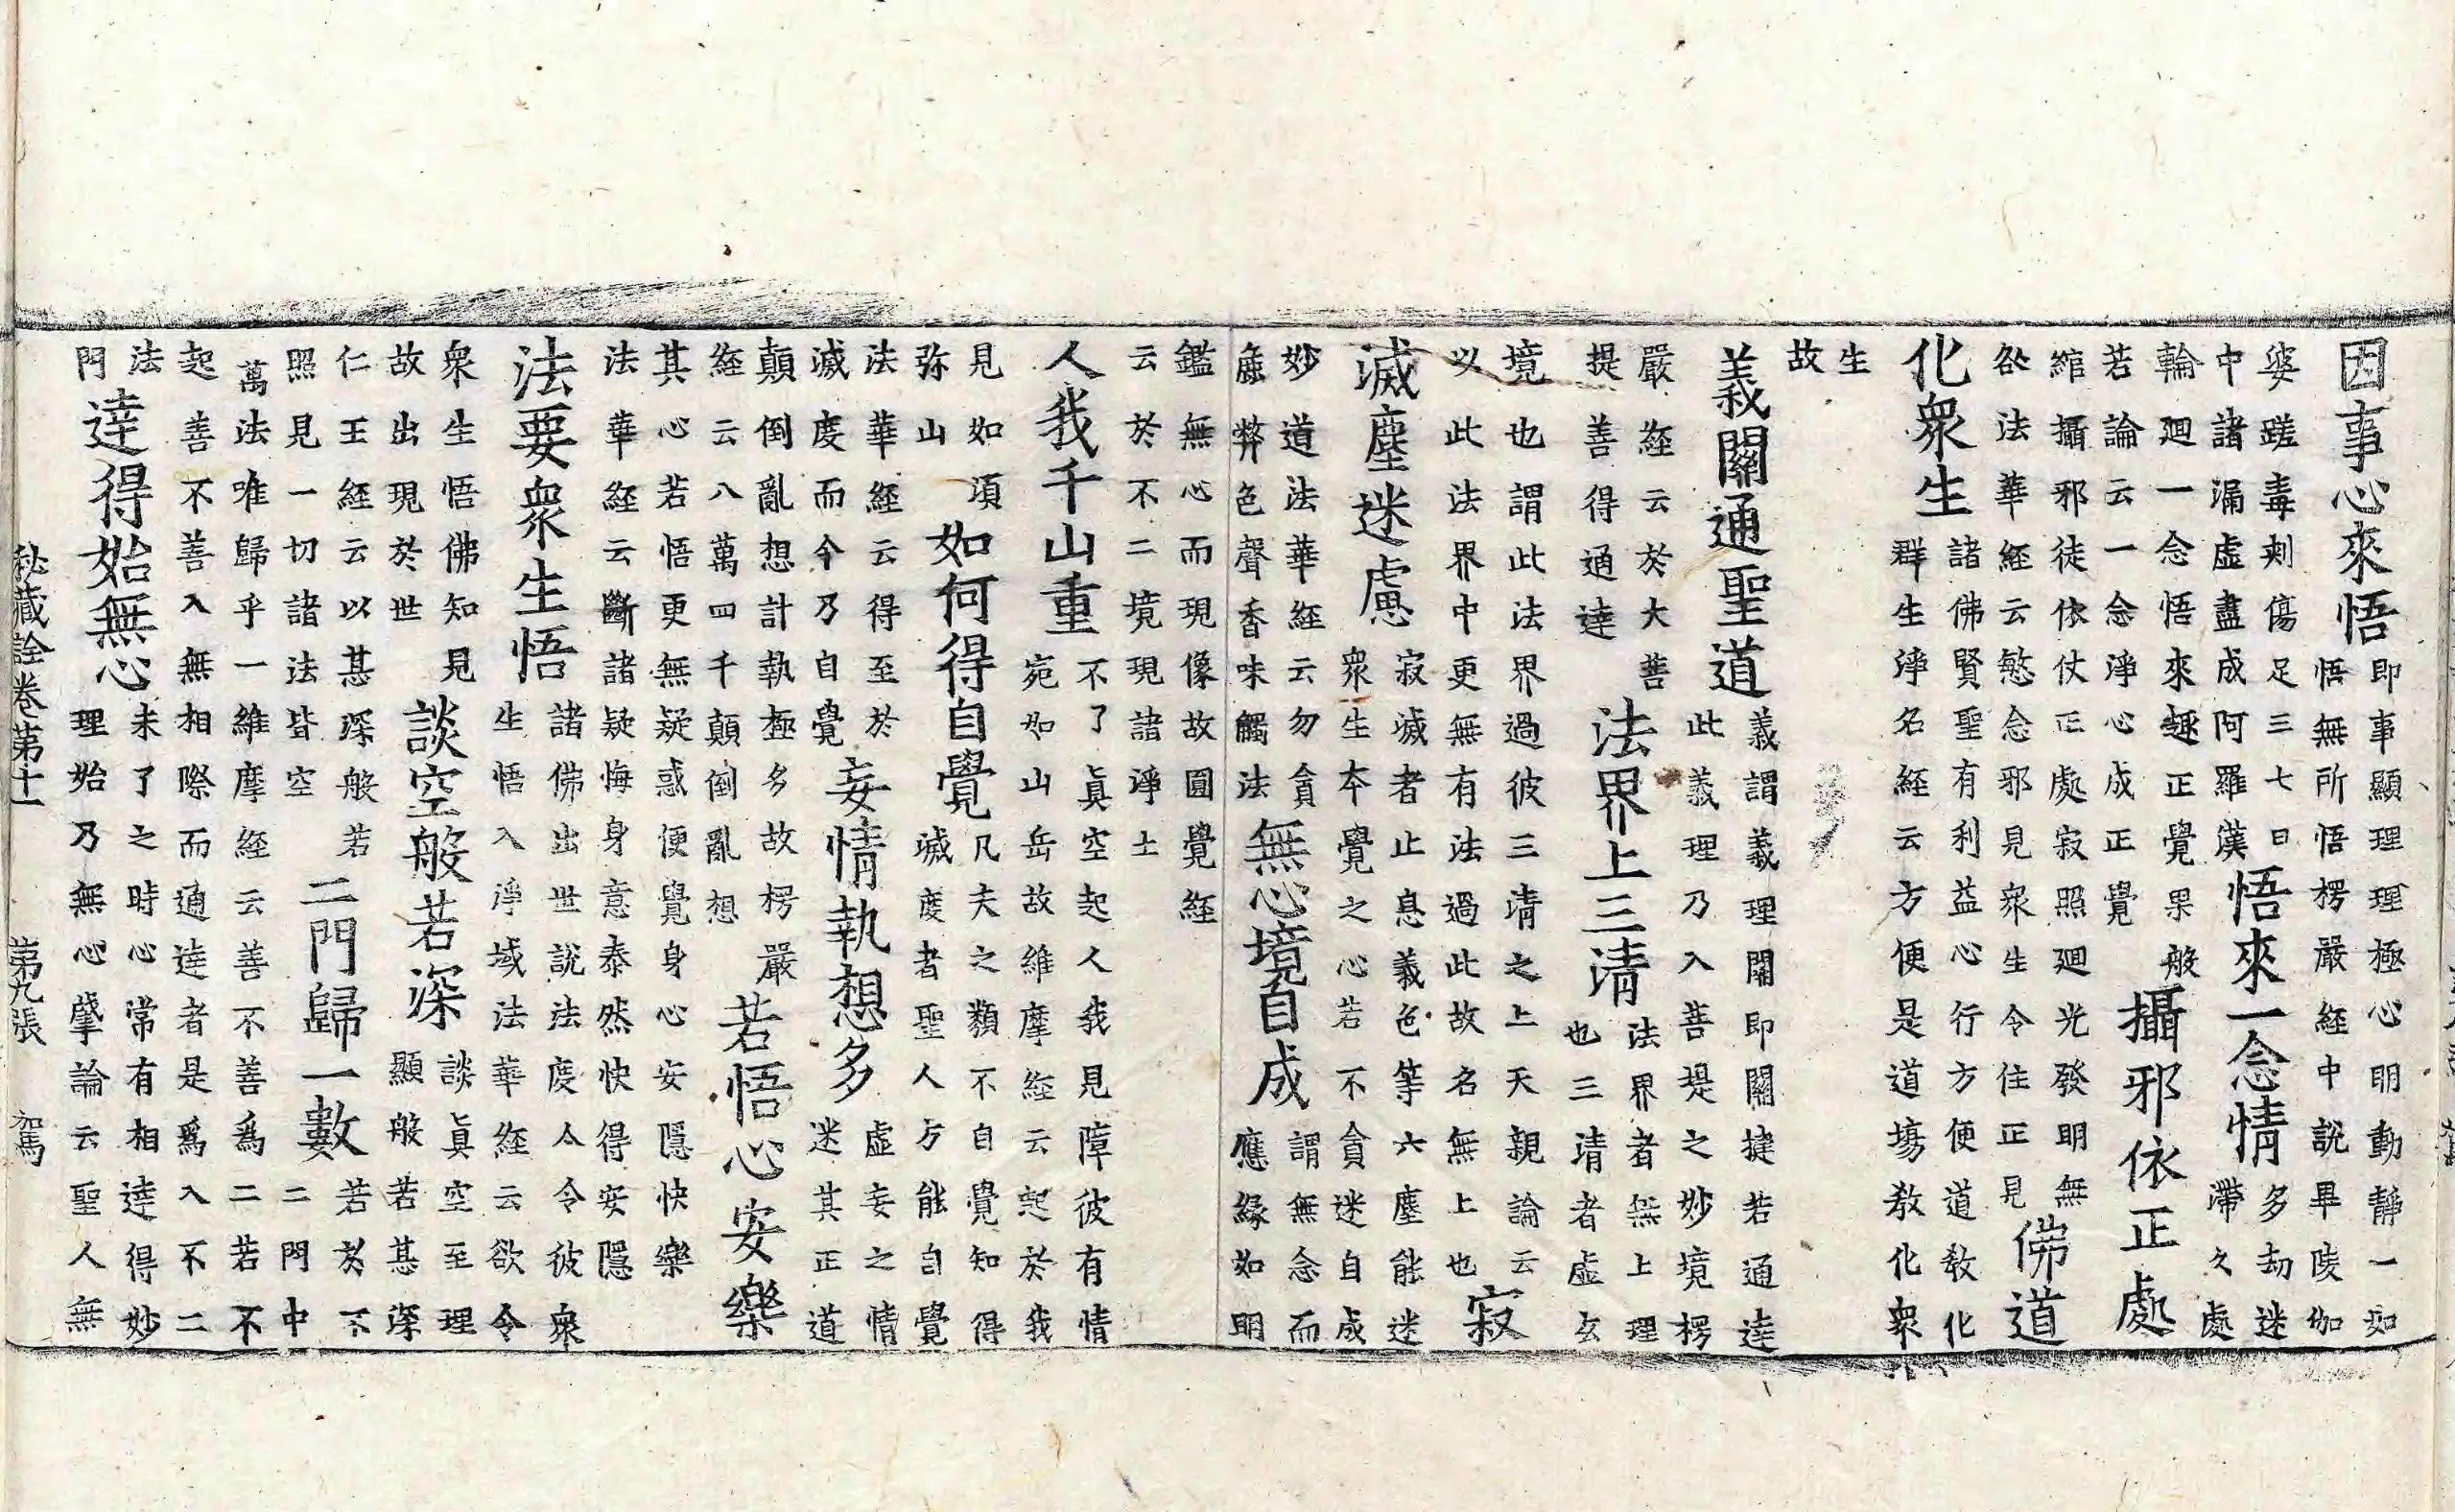 因事心來悟
即事顯理理極心明動靜一如
悟無所悟楞嚴経中說畢陵伽
婆蹉毒刺傷足三七日
中諸漏虛盡成阿羅漢
悟來一念情
多劫迷
滯久處
輪廻一念悟來趣正覺果般
若論云一念淨心成正覺
攝邪依正處
綰攝邪徒依仗正處寂照廻光發明無
咎法華経云愍念邪見衆生令住正見
佛道
化衆生
諸佛賢聖有利益心行方便道教化
群生淨名経云方便是道塲教化衆
生
故
義關通聖道
義謂義理關即關揵若通達
此義理乃入菩提之妙境楞
嚴経云於大菩
提善得通達
法界上三清
法界者無上理
也三清者虛玄
境也謂此法界過彼三清之上天親論云
以此法界中更無有法過此故名無上也
寂
滅塵迷慮
寂滅者止息義色等六塵能迷
衆生本覺之心若不貪迷自成
妙道法華経云勿貪
麁弊色聲香味觸法
無心境自成
謂無念而
應緣如明
鑑無心而現像故圓覺経
云於不二境現諸淨土
人我千山重
不了眞空起人我見障彼有情
宛如山岳故維摩経云起於我
見如須
弥山
如何得自覺
凡夫之類不自覺知得
滅度者聖人方能自覺
法華経云得至於
滅度而今乃自覺
妄情執想多
虛妄之情
迷其正道
顛倒亂想計執極多故楞嚴
経云八萬四千顛倒亂想
若悟心安樂
其心若悟更無疑惑便覺身心安隱快樂
法華経云斷諸疑悔身意泰然快得安隱
法要衆生悟
諸佛出世說法度人令彼衆
生悟入淨域法華経云欲令
衆生悟佛知見
故出現於世
談空般若深
談眞空至理
顯般若甚深
仁王経云以甚深般若
照見一切諸法皆空
二門歸一數
若於不
二門中
萬法唯歸乎一維摩経云善不善爲二若不
起善不善入無相際而通達者是爲入不二
法
門
達得始無心
未了之時心常有相達得妙
理始乃無心肇論云聖人無
秘藏詮卷第十一 第九張 駕